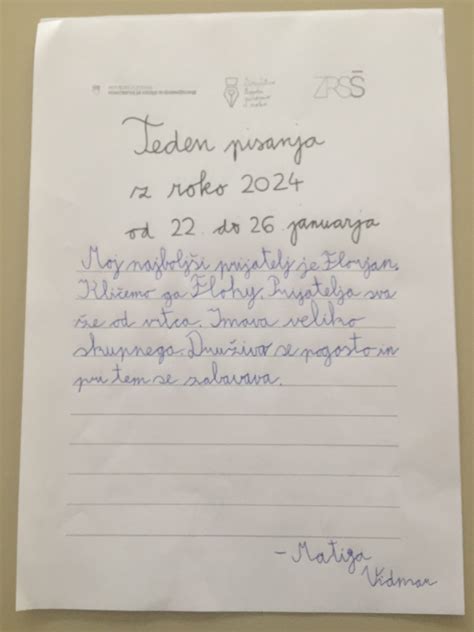 REPUBLIKA SLOVENIJA
MINISTRSTVO ZA VZGOJO IN IZOBRAŽEVANJE
Društvo
Radi
pišemo
z roko
ZRSŠ
Teden pisanja
z roko 2024
od 22. do 26. januarja
Moj najboljši prijatelj je Florjan.
Kličemo ga Flohy. Prijatelja sva
že od vrtca. Imava veliko
skupnega. Druživa se pogosto in
pri tem se zabavava.
- Matija
Vidmar